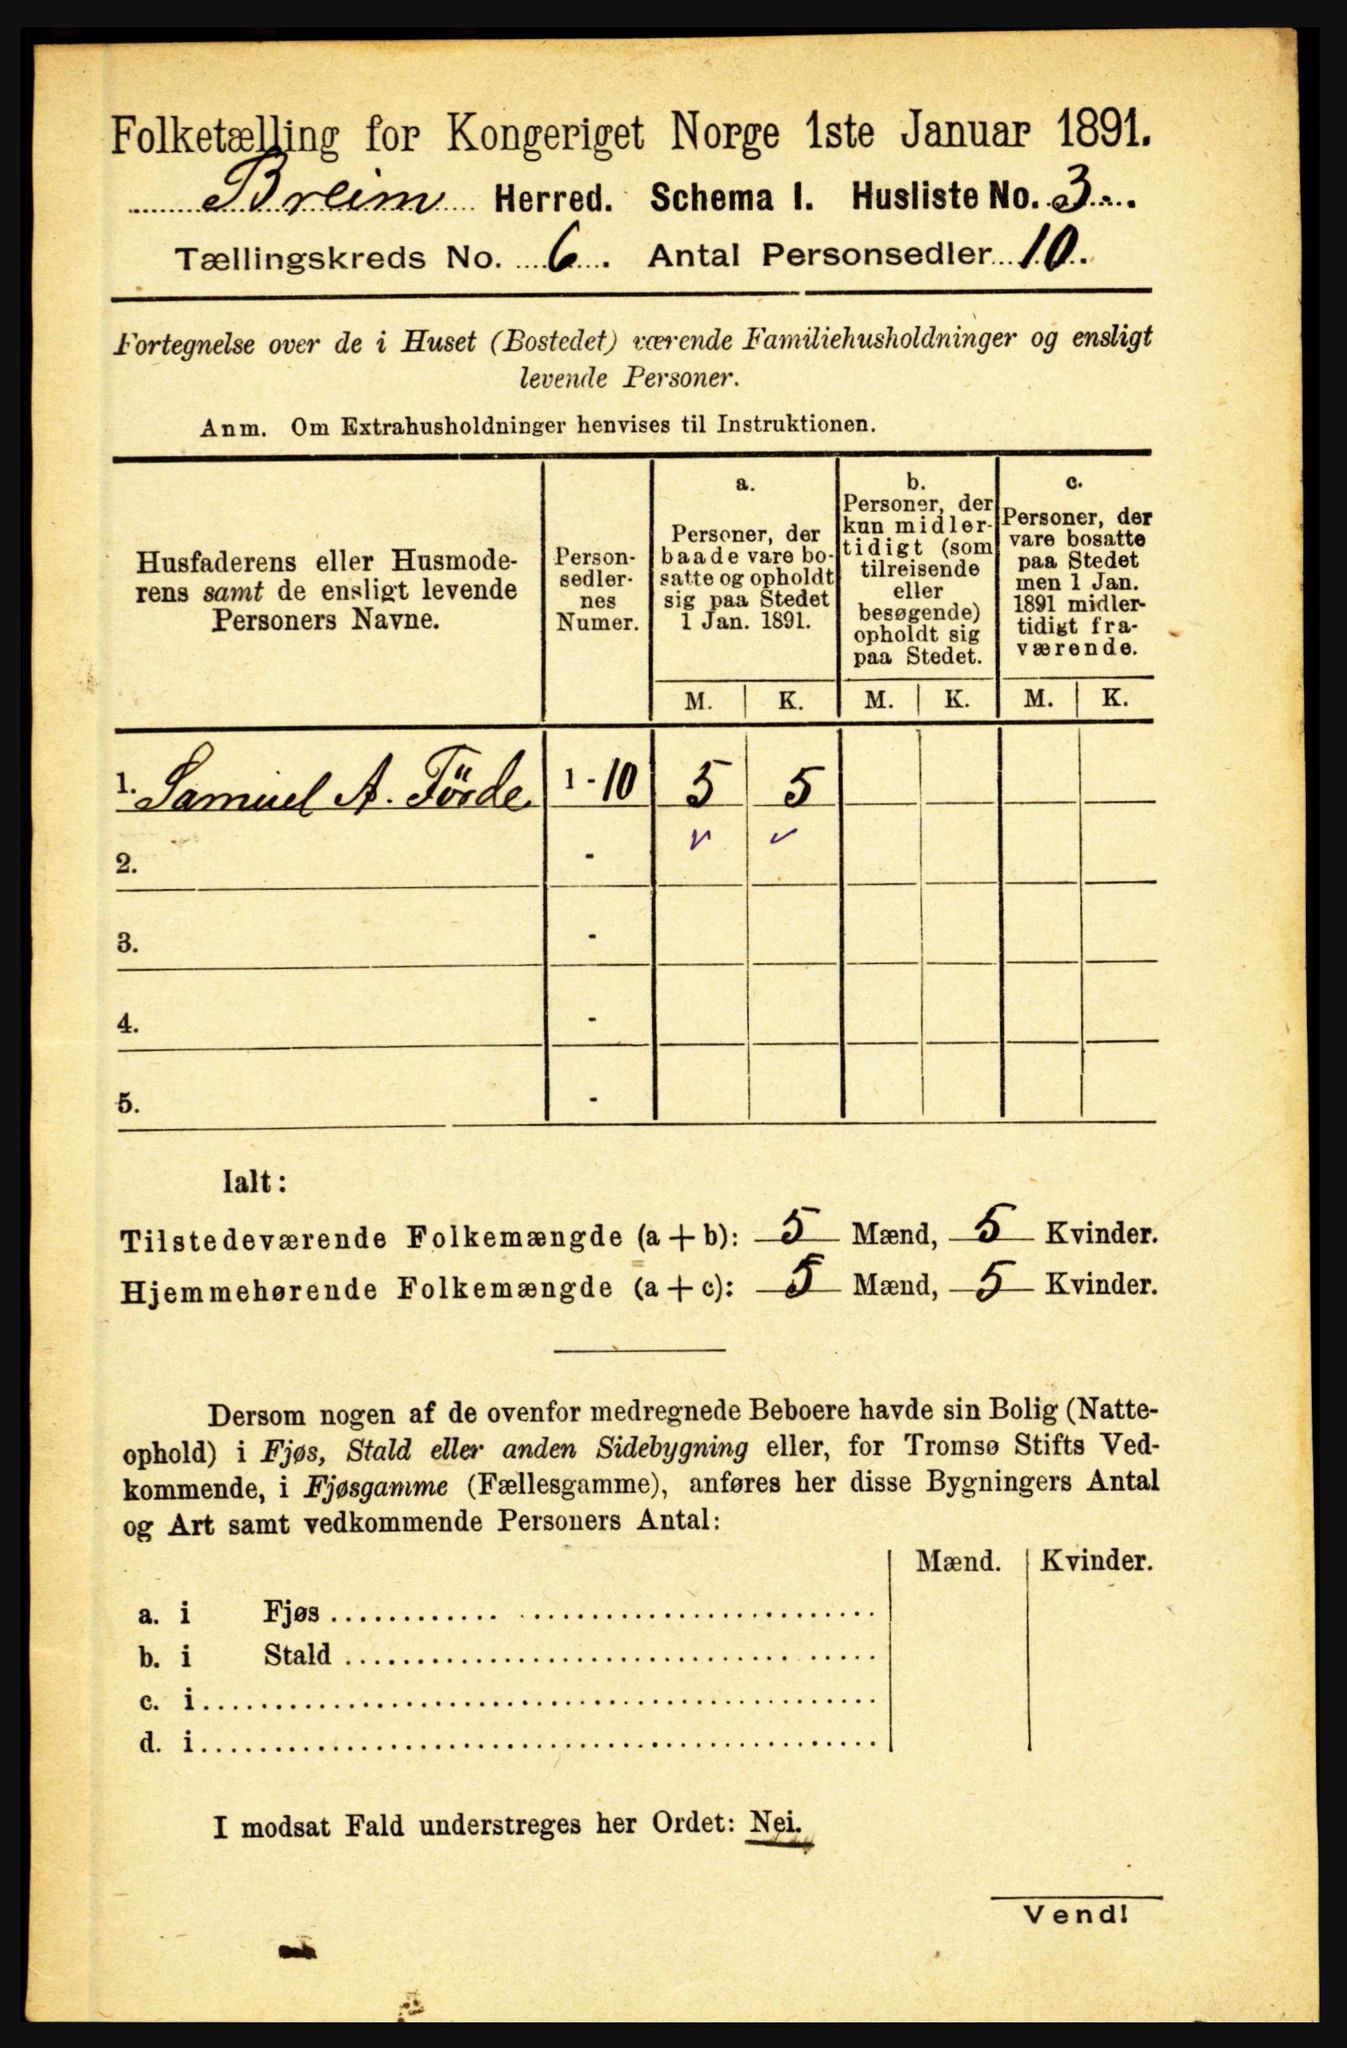 Folketælling for Kongeriget Norge 1ste Januar 1891.
Breim Herred. Schema I. Husliste No. 3.
Tællingskreds No. 6. Antal Personsedler 10.
Fortegnelse over de i Huset (Bostedet) værende Familiehusholdninger og ensligt
levende Personer.
Anm. Om Extrahusholdninger henvises til Instruktionen.
Husfaderens eller Husmode-
rens samt de ensligt levende
Personers Navne.
Person-
sedler-
nes
Numer.
a.
Personer, der
baade vare bo-
satte og opholdt
sig paa Stedet
1 Jan. 1891.
b.
Personer, der
kun midler-
tidigt (som
tilreisende
eller
besøgende)
opholdt sig
paa Stedet.
c.
Personer, der
vare bosatte
paa Stedet
men 1 Jan.
1891 midler-
tidigt fra-
værende.
M. K. M. K. M. K.
1. Samuel A. Förde 1 - 10 5 5
2. -
3. -
4. -
5. -
Ialt:
Tilstedeværende Folkemængde (a + b): 5 Mænd, 5 Kvinder.
Hjemmehørende Folkemængde (a + c): 5 Mænd, 5 Kvinder.
Dersom nogen af de ovenfor medregnede Beboere havde sin Bolig (Natte-
ophold) i Fjøs, Stald eller anden Sidebygning eller, for Tromsø Stifts Ved-
kommende, i Fjøsgamme (Fællesgamme), anføres her disse Bygningers Antal
og Art samt vedkommende Personers Antal:
Mænd. Kvinder.
a. i Fjøs
b. i Stald
c. i
d. i
I modsat Fald understreges her Ordet: Nei.
Vend!